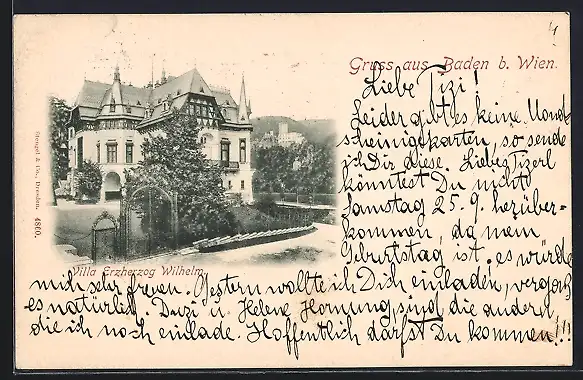 4
Gruss aus Baden b. Wien.
Stengel & Co., Dresden. 4860.
Villa Erzherzog Wilhelm
Liebe Tizi!
Leider gibt es keine Mond-
scheinigekarten, so sende
ich Dir diese. Liebes Tizerl
könntest Du nicht
Samstag 25. 9. herüber-
kommen, da mein
Geburtstag ist, es würde
mich sehr freuen. Gestern wollte ich Dich einladen, vergaß
es natürlich. Duzi u. Helene Hornung sind die andern,
die ich noch einlade. Hoffentlich darfst Du kommen!!!